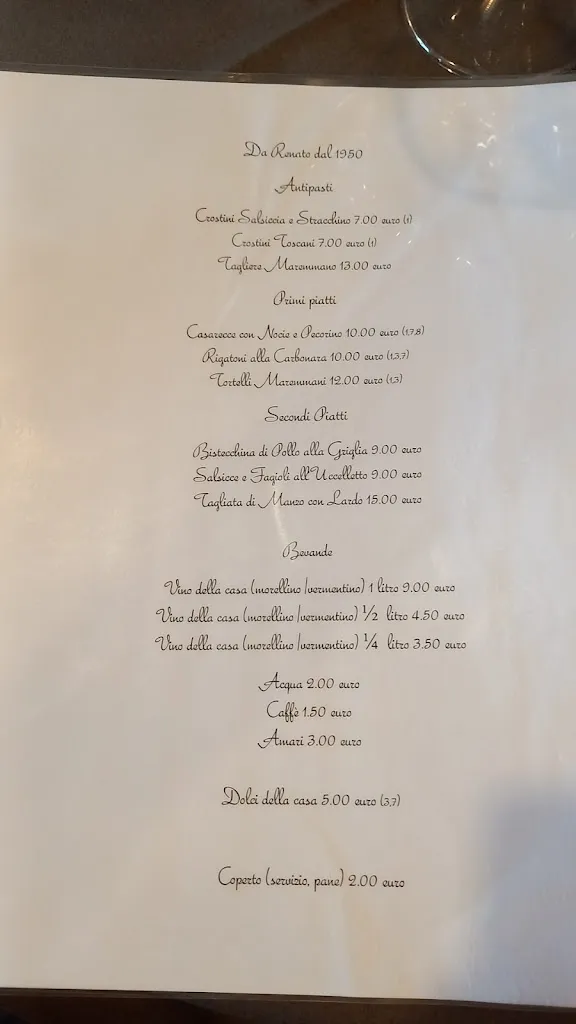 Da Renato dal 1950
Antipasti
Crostini Salsiccia e Stracchino 7.00 euro (1)
Crostini Toscani 7.00 euro (1)
Tagliere Maremmano 13.00 euro
Primi piatti
Casarecce con Nocie e Pecorino 10.00 euro (1,7,8)
Rigatoni alla Carbonara 10.00 euro (1,3,7)
Tortelli Maremmani 12.00 euro (1,3)
Secondi Piatti
Bistecchina di Pollo alla Griglia 9.00 euro
Salsicce e Fagioli all'Uccelletto 9.00 euro
Tagliata di Manzo con Lardo 15.00 euro
Bevande
Vino della casa (morellino/vermentino) 1 litro 9.00 euro
Vino della casa (morellino/vermentino) ½ litro 4.50 euro
Vino della casa (morellino/vermentino) ¼ litro 3.50 euro
Acqua 2.00 euro
Caffè 1.50 euro
Amari 3.00 euro
Dolci della casa 5.00 euro (3,7)
Coperto (servizio, pane) 2.00 euro